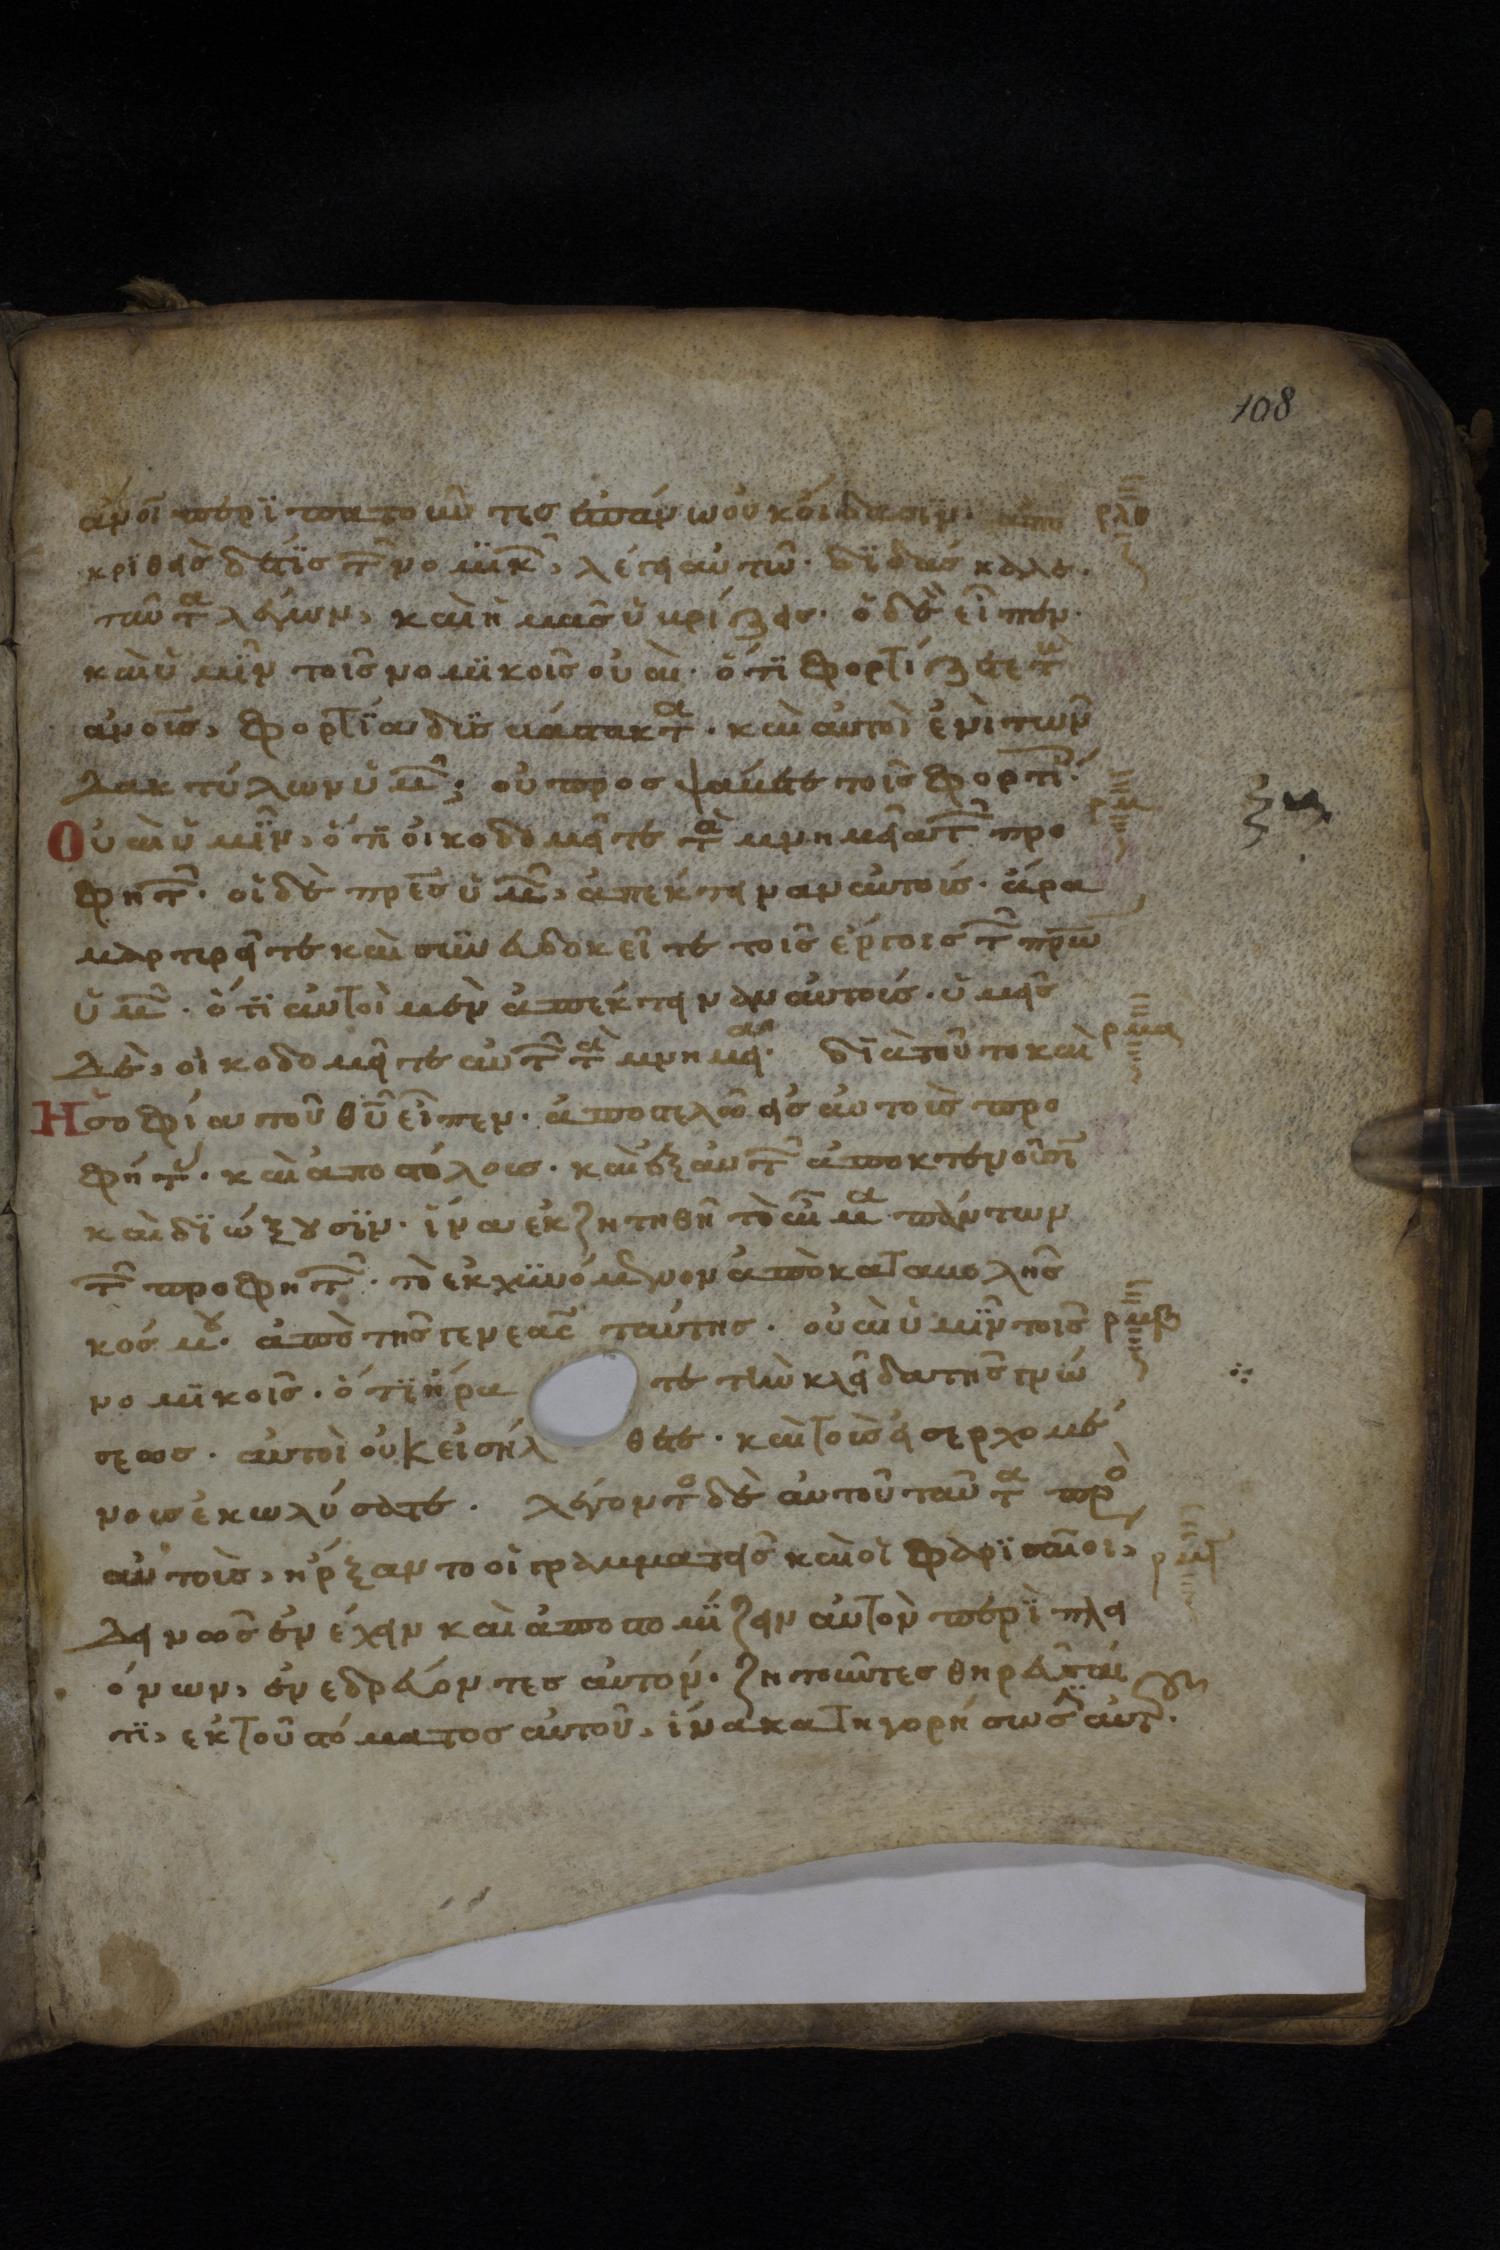 108
ἀνοῖ περϊπατοῦν τες ἐπάνω οὐκ οἴδασϊν· ἀπο ρλθ
κρϊθεὶς δέ τϊς τῶ νομϊκῶ, λέγει αὐτῶ· δϊδάσκαλε·
ταῦτα λέγων, καὶ ἡμᾶς ὑβρίζεις· ὁ δὲ εἶπεν·
καὶ ὑμῖν τοῖς νομϊκοῖς οὐαὶ· ὅτϊ φορτίζετε τοὺ
ἀνοῖς, φορτΐα δϊσβάστακτα· καὶ αὐτοὶ ἑνὶ τῶν
δακτύλων ὑμῶ, οὐ προσψαύετε τοῖς φορτΐ·
Οὐαὶ ὑμῖν, ὅτϊ οἰκοδομεῖτε τὰ μνημεῖα τῶ προ ρμ
φητῶ· οἱ δὲ πρες ὑμῶ, ἀπέκτειναν αὐτούς· ἄρα
μαρτυρεῖτε καὶ συνευδοκεῖτε τοῖς ἔργοις τῶ πρων
ὑμῶ· ὅτϊ αὐτοὶ μὲν ἀπέκτειναν αὐτούς· ὑμεῖς
δὲ, οἰκοδομεῖτε αὐτῶ τὰ μνημεῖα· δϊὰ τοῦτο καὶ ρμα
Ἡ σοφία τοῦ θυ εἶπεν· ἀποστελῶ εἰς αὐτοὺς προ
φήτ· καὶ ἀποστόλους· καὶ ἐξ αὐτῶ ἀποκτενοῦσϊ
καὶ δϊώξουσϊν· ἵνα ἐκζητηθῆ τὸ αἷμα πάντων
τῶ προφητῶ· τὸ ἐκχϋνόμενον ἀπὸ καταβολῆς
κόσμου· ἀπὸ τῆς γενεᾶς ταύτης· οὐαὶ ὑμῖν τοῖς ρμβ
νομϊκοῖς· ὅτϊ ἤρα τε τὴν κλεῖδα τῆς γνώ
σεως· αὐτοὶ οὐκ εἰσήλ θετε· καὶ τοὺς εἰσερχομέ
νους ἐκωλύσατε· λέγοντο δὲ αὐτοῦ ταῦτα πρὸ
αὐτοὺς, ἤρξαντο οἱ γραμματεῖς καὶ οἱ φαρϊσαῖοι, ρμγ
δεινῶς ἐνέχειν καὶ ἀποστομΐζειν αὐτὸν περϊ πλει
όνων, ἐνεδρεύοντες αὐτόν· ζητοῦντες θηρεῦσαί
τϊ, ἐκ τοῦ στόματος αὐτοῦ, ἵνα κατηγορήσωσϊ αὐτ·